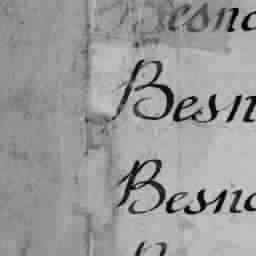 Besna
Besn
Besna